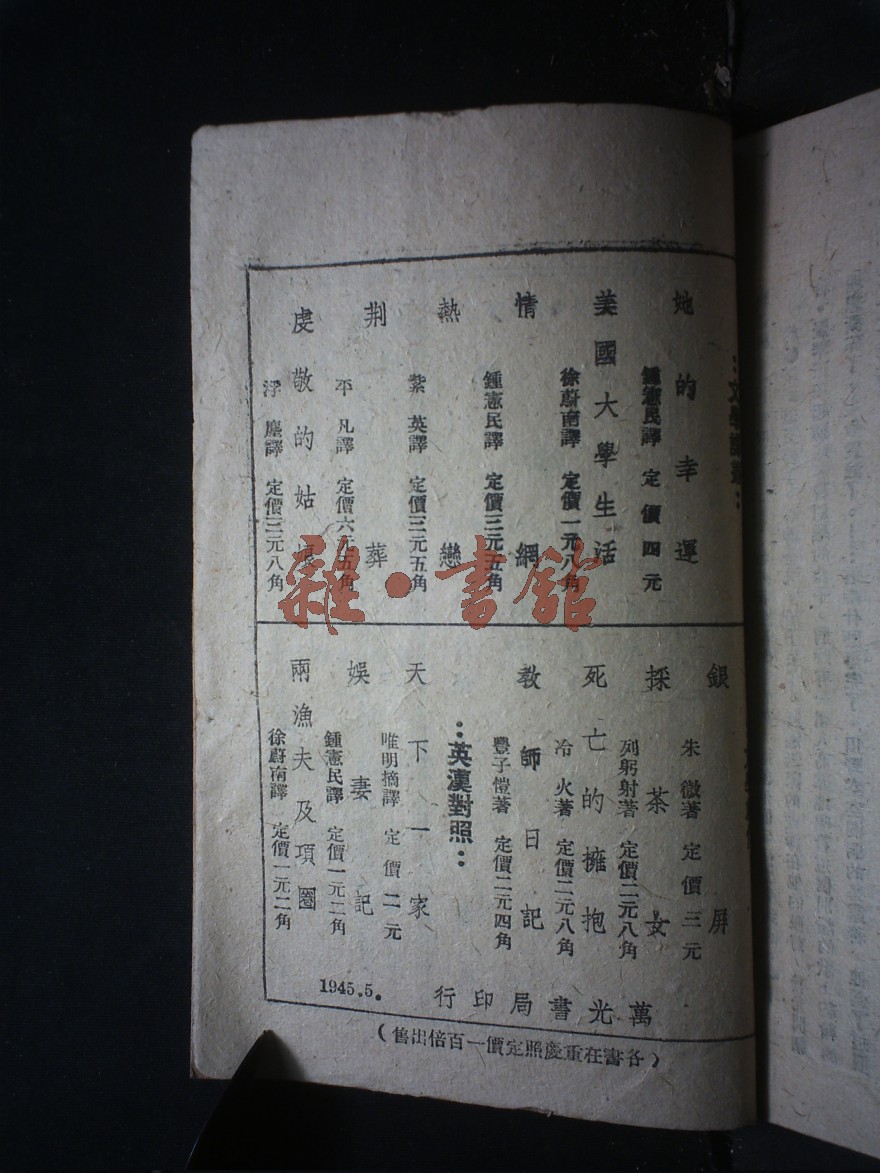 她的幸運
鍾憲民譯 定價四元
美國大學生活
徐蔚南譯 定價一元八角
情網
鍾憲民譯 定價三元五角
熱戀
紫英譯 定價三元五角
荆葬
平凡譯 定價六元五角
虔敬的姑娘
浮塵譯 定價三元八角
銀屏
朱微著 定價三元
採茶女
列躬射著 定價二元八角
死亡的擁抱
冷火著 定價二元八角
教師日記
豐子愷著 定價二元四角
：英漢對照：
天下一家
唯明摘譯 定價二元
娛妻記
鍾憲民譯 定價一元二角
兩漁夫及項圈
徐蔚南譯 定價一元二角
萬光書局印行
1945.5.
（各書在重慶照定價一百倍出售）
雜·書館